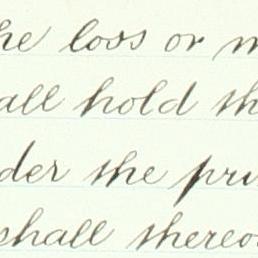 he loss or m
all hold th
der the pri
shall thereo